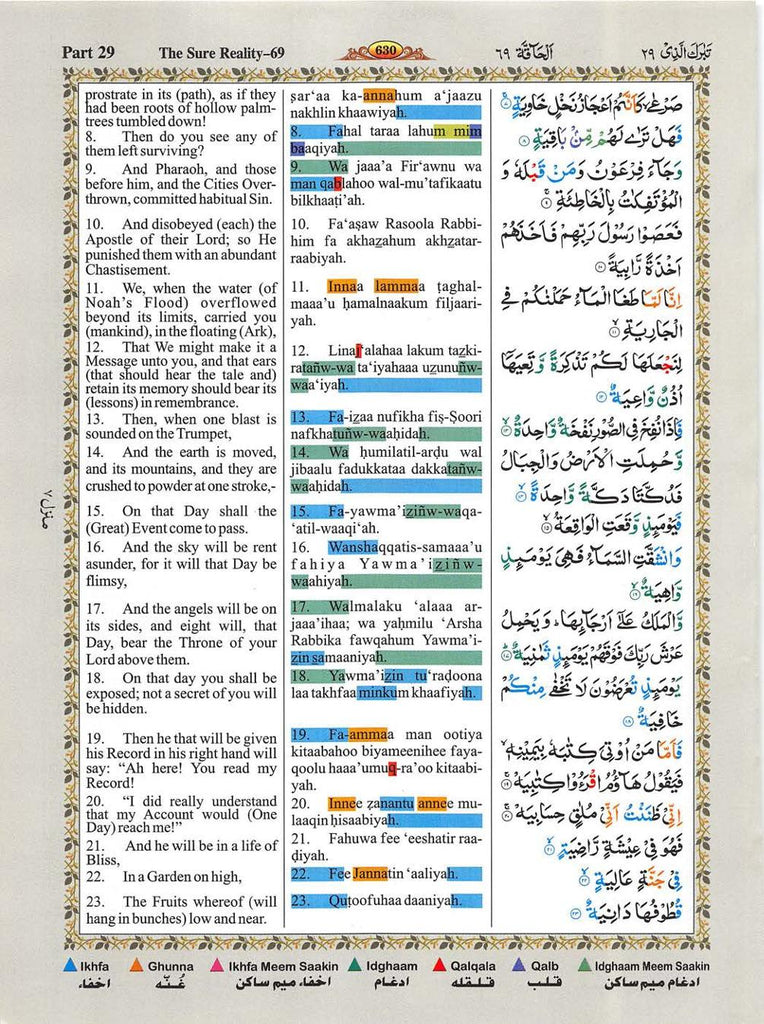 Part 29 The Sure Reality–69 630 اَلْحَآقَّة ٦٩ تَبٰرَكَ الَّذِىْ ٢٩
prostrate in its (path), as if they
had been roots of hollow palm-
trees tumbled down!
8. Then do you see any of
them left surviving?
9. And Pharaoh, and those
before him, and the Cities Over-
thrown, committed habitual Sin.
10. And disobeyed (each) the
Apostle of their Lord; so He
punished them with an abundant
Chastisement.
11. We, when the water (of
Noah's Flood) overflowed
beyond its limits, carried you
(mankind), in the floating (Ark),
12. That We might make it a
Message unto you, and that ears
(that should hear the tale and)
retain its memory should bear its
(lessons) in remembrance.
13. Then, when one blast is
sounded on the Trumpet,
14. And the earth is moved,
and its mountains, and they are
crushed to powder at one stroke,-
15. On that Day shall the
(Great) Event come to pass.
16. And the sky will be rent
asunder, for it will that Day be
flimsy,
17. And the angels will be on
its sides, and eight will, that
Day, bear the Throne of your
Lord above them.
18. On that day you shall be
exposed; not a secret of you will
be hidden.
19. Then he that will be given
his Record in his right hand will
say: “Ah here! You read my
Record!
20. “I did really understand
that my Account would (One
Day) reach me!”
21. And he will be in a life of
Bliss,
22. In a Garden on high,
23. The Fruits whereof (will
hang in bunches) low and near.
ṣar‘aa ka-annahum a‘jaazu
nakhlin khaawiyah.
8. Fahal taraa lahum mim
baaqiyah.
9. Wa jaaa’a Fir‘awnu wa
man qablahoo wal-mu’tafikaatu
bilkhaaṭi’ah.
10. Fa‘aṣaw Rasoola Rabbi-
him fa akhazahum akhzatar-
raabiyah.
11. Innaa lammaa ṭaghal-
maaa’u ḥamalnaakum filjaari-
yah.
12. Linaj‘alahaa lakum tazki-
ratañw-wa ta‘iyahaaa uzunuñw-
waa‘iyah.
13. Fa-izaa nufikha fiṣ-Ṣoori
nafkhatuñw-waaḥidah.
14. Wa ḥumilatil-arḍu wal
jibaalu fadukkataa dakkatañw-
waaḥidah.
15. Fa-yawma’iziñw-waqa-
‘atil-waaqi‘ah.
16. Wanshaqqatis-samaaa’u
fahiya Yawma’iziñw-
waahiyah.
17. Walmalaku ‘alaaa ar-
jaaa’ihaa; wa yaḥmilu ‘Arsha
Rabbika fawqahum Yawma’i-
zin samaaniyah.
18. Yawma’izin tu‘raḍoona
laa takhfaa minkum khaafiyah.
19. Fa-ammaa man ootiya
kitaabahoo biyameenihee faya-
qoolu haaa’umuq-ra’oo kitaabi-
yah.
20. Innee ẓanantu annee mu-
laaqin ḥisaabiyah.
21. Fahuwa fee ‘eeshatir raa-
ḍiyah.
22. Fee Jannatin ‘aaliyah.
23. Quṭoofuhaa daaniyah.
صَرْعٰى كَاَنَّهُمْ اَعْجَازُ نَخْلٍ خَاوِيَةٍ ۝٧
فَهَلْ تَرٰى لَهُمْ مِّنْۢ بَاقِيَةٍ ۝٨
وَجَآءَ فِرْعَوْنُ وَمَنْ قَبْلَهٗ وَ
الْمُؤْتَفِكٰتُ بِالْخَاطِئَةِ ۝٩
فَعَصَوْا رَسُوْلَ رَبِّهِمْ فَاَخَذَهُمْ
اَخْذَةً رَّابِيَةً ۝١٠
اِنَّا لَمَّا طَغَا الْمَآءُ حَمَلْنٰكُمْ فِى
الْجَارِيَةِ ۝١١
لِنَجْعَلَهَا لَكُمْ تَذْكِرَةً وَّتَعِيَهَاۤ
اُذُنٌ وَّاعِيَةٌ ۝١٢
فَاِذَا نُفِخَ فِى الصُّوْرِ نَفْخَةٌ وَّاحِدَةٌ ۝١٣
وَّحُمِلَتِ الْاَرْضُ وَالْجِبَالُ
فَدُكَّتَا دَكَّةً وَّاحِدَةً ۝١٤
فَيَوْمَئِذٍ وَّقَعَتِ الْوَاقِعَةُ ۝١٥
وَانْشَقَّتِ السَّمَآءُ فَهِىَ يَوْمَئِذٍ
وَّاهِيَةٌ ۝١٦
وَّالْمَلَكُ عَلٰٓى اَرْجَآئِهَا ؕ وَيَحْمِلُ
عَرْشَ رَبِّكَ فَوْقَهُمْ يَوْمَئِذٍ ثَمٰنِيَةٌ ۝١٧
يَوْمَئِذٍ تُعْرَضُوْنَ لَا تَخْفٰى مِنْكُمْ
خَافِيَةٌ ۝١٨
فَاَمَّا مَنْ اُوْتِىَ كِتٰبَهٗ بِيَمِيْنِهٖ ۙ
فَيَقُوْلُ هَآؤُمُ اقْرَءُوْا كِتٰبِيَهْ ۝١٩
اِنِّىْ ظَنَنْتُ اَنِّىْ مُلٰقٍ حِسَابِيَهْ ۝٢٠
فَهُوَ فِىْ عِيْشَةٍ رَّاضِيَةٍ ۝٢١
فِىْ جَنَّةٍ عَالِيَةٍ ۝٢٢
قُطُوْفُهَا دَانِيَةٌ ۝٢٣
منزل ٧
Ikhfa Ghunna Ikhfa Meem Saakin Idghaam Qalqala Qalb Idghaam Meem Saakin
اخفاء غُنّه اخفاء ميم ساكن ادغام قلقله قلب ادغام ميم ساكن